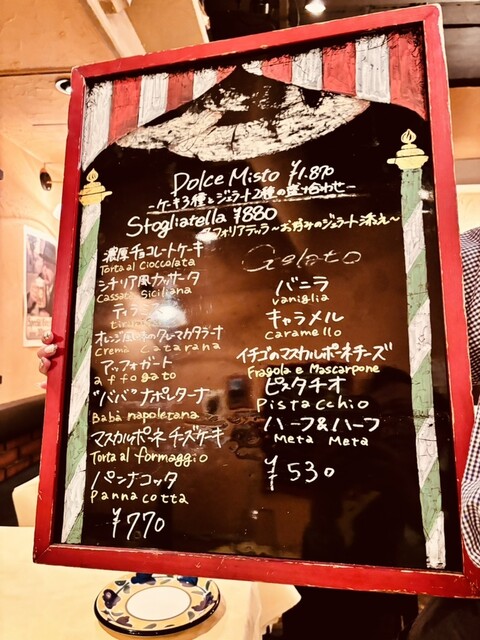 Dolce Misto ¥1.870
-ケーキ3種とジェラート2種の盛り合わせ-
Sfogliatella ¥880
スフォリアテッラ～お好みのジェラート添え～
濃厚チョコレートケーキ
Torta al Cioccolata
シチリア風カッサータ
Cassata Siciliana
オレンジ風味のクレーマカタラーナ
Crema Catarana
アッフォガート
affogato
"ババ"ナポレターナ
Babà napoletana
マスカルポーネチーズケーキ
Torta al formaggio
パンナコッタ
Pannacotta
¥770
Gelato
バニラ
vaniglia
キャラメル
caramello
イチゴのマスカルポーネチーズ
Fragola e Mascarpone
ピスタチオ
Pistacchio
ハーフ&ハーフ
Meta Meta
¥530